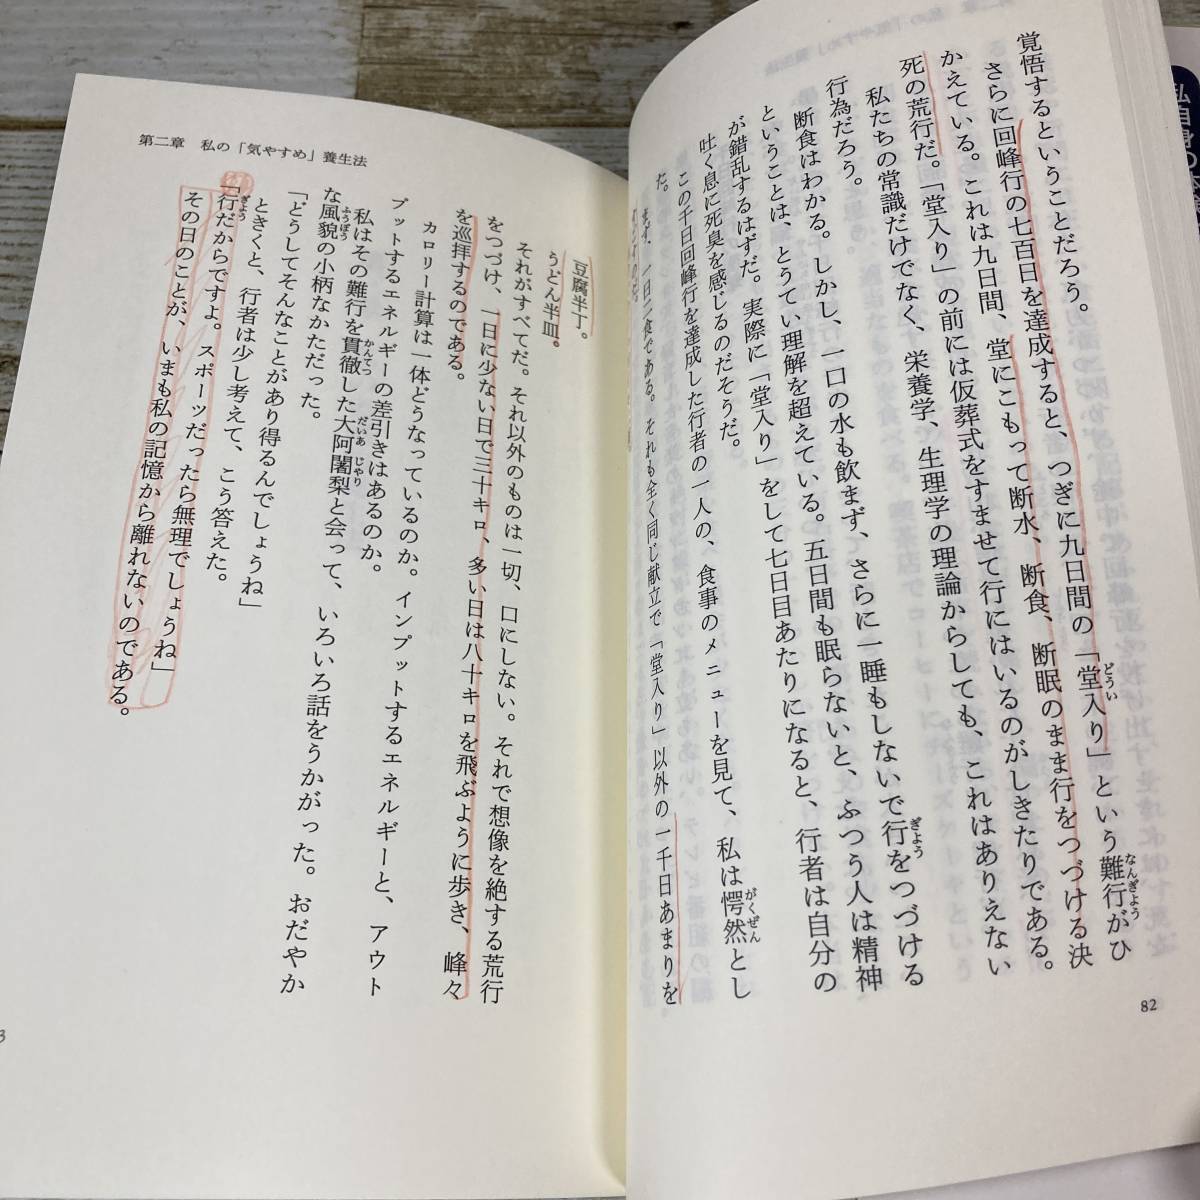 覚悟するということだろう。
さらに回峰行の七百日を達成すると、つぎに九日間の「堂入り」という難行がひ
かえている。これは九日間、堂にこもって断水、断食、断眠のまま行をつづける決
死の荒行だ。「堂入り」の前には仮葬式をすませて行にはいるのがしきたりである。
私たちの常識だけでなく、栄養学、生理学の理論からしても、これはありえない
行為だろう。
断食はわかる。しかし、一口の水も飲まず、さらに一睡もしないで行をつづける
ということは、とうてい理解を超えている。五日間も眠らないと、ふつう人は精神
が錯乱するはずだ。実際に「堂入り」をして七日目あたりになると、行者は自分の
吐く息に死臭を感じるのだそうだ。
この千日回峰行を達成した行者の一人の、食事のメニューを見て、私は愕然とし
た。
まず、一日二食である。それも全く同じ献立で「堂入り」以外の一千日あまりを
82
豆腐半丁。
うどん半皿。
それがすべてだ。それ以外のものは一切、口にしない。それで想像を絶する荒行
をつづけ、一日に少ない日で三十キロ、多い日は八十キロを飛ぶように歩き、峰々
を巡拝するのである。
カロリー計算は一体どうなっているのか。インプットするエネルギーと、アウト
プットするエネルギーの差引きはあるのか。
私はその難行を貫徹した大阿闍梨と会って、いろいろ話をうかがった。おだやか
な風貌の小柄なかただった。
「どうしてそんなことがあり得るんでしょうね」
ときくと、行者は少し考えて、こう答えた。
「行だからですよ。スポーツだったら無理でしょうね」
その日のことが、いまも私の記憶から離れないのである。
第二章 私の「気やすめ」養生法
3
私自身の